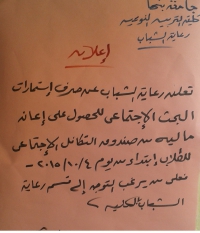 جامعة بنها
كلية التربية النوعية
رعاية الشباب
إعلان
تعلن رعاية الشباب عن صرف إستمارات
البحث الإجتماعى للحصول على إعانة
مالية من صندوق التكافل الإجتماعى
للطلاب إبتداء من يوم ٢٠١٥/١٠/٤ -
فعلى من يرغب التوجه إلى قسم رعاية
الشباب بالكلية